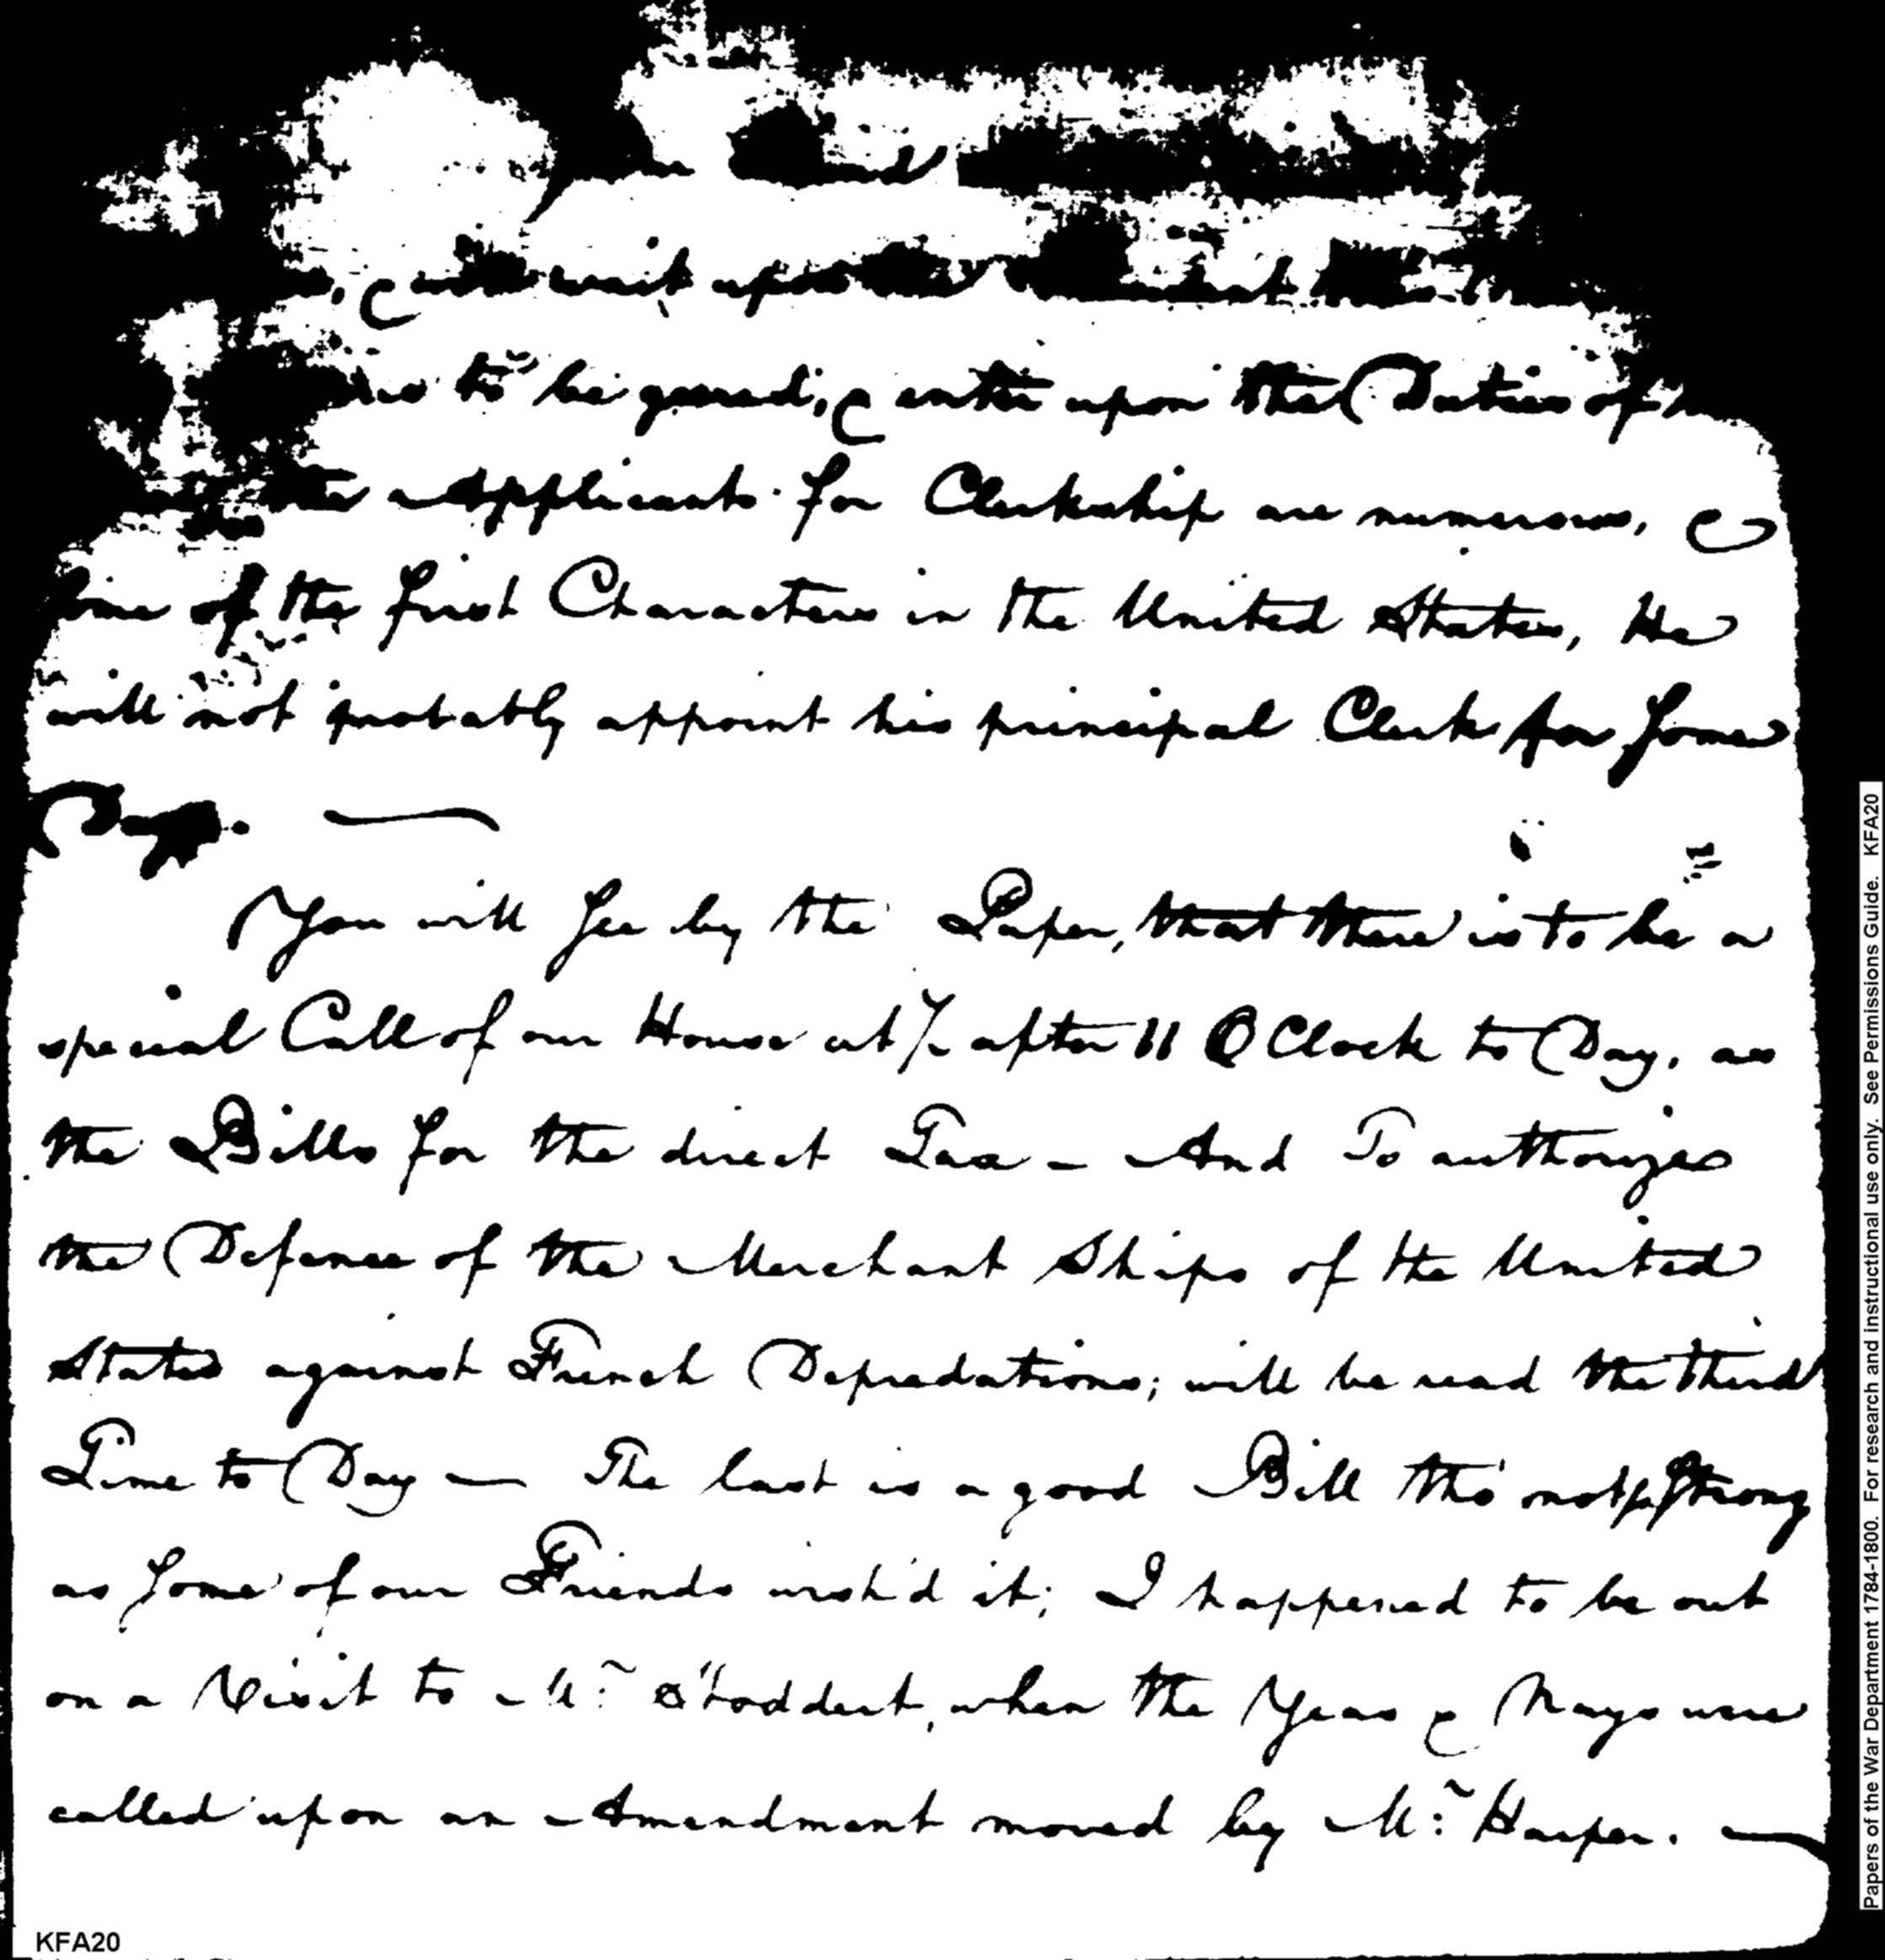 & wait upon
to be guard; & enter upon the Duties of
Applicants for Clerkship are numerous, &
some of the first Characters in the United States, He
will not probably appoint his principal Clerk for some
Days. —
You will see by the Paper, that there is to be a
special Call of our House at ½ after 11 O Clock to Day. as
the Bills for the direct Tax – And To authorize
the Defence of the Merchant Ships of the United
States against French Depredations; will be read the third
Time to Day — The last is a good Bill tho' not so strong
as some of our Friends wish'd it; I happened to be out
on a Visit to Mr. Stoddert, when the Yeas & Nays were
called upon an Amendment moved by Mr. Harper. —
KFA20
Papers of the War Department 1784-1800. For research and instructional use only. See Permissions Guide. KFA20